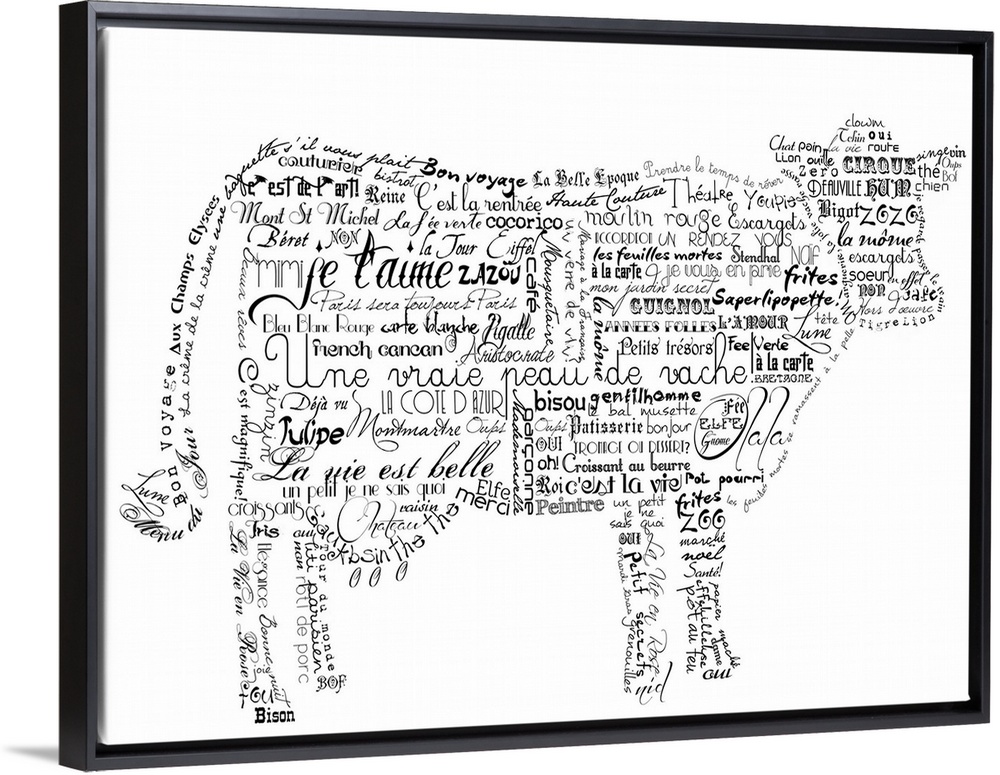 clown
Tchin oui
Chat pain la vie route singe vin
Lion ouile CIRQUE Oups
Zero the Bol
DEAUVILLE HUM chien
Bigot ZOZO
la môme
escargots
soeur en effet
NON
Hors d'oeuvre
Tigre Lion
tête
Lune
à la pelle
se ramassent
les feuilles mortes
une baguette s'il vous plait
couturier
bistrot
Bon voyage La Belle Epoque
Prendre le temps de rêver
C'est de l'art!
Reine C'est la rentrée Haute Couture Théâtre Youpie
Mont St Michel La fée verte cocorico moulin rouge Escargots
Béret NON la Tour Eiffel
ACCORDION UN RENDEZ VOUS
les feuilles mortes Stendhal Naif
mimi je t'aime ZAZOU
à la carte je vous en prie frites
mon jardin secret
Paris sera toujours Paris
GUIGNOL Saperlipopette!
Bleu Blanc Rouge carte blanche Pigalle
ANNEES FOLLES L'AMOUR
french cancan Aristocrate
Petits trésors Fee Verte
à la carte
Une vraie peau de vache
BRETAGNE
café
Mousquetaire
un verre de vin
Mariage à la Française
la môme
Beaux rêves
Déjà vu LA COTE D AZUR bisou gentilhomme
le bal musette
Fée
ELFE
Gnome
lala
Tulipe Montmartre Oups
Oups Patisserie bonjour
OUI FROMAGE OU DESSERT?
La vie est belle
oh! Croissant au beurre
Mademoiselle
garçonne
un petit je ne sais quoi
Roi c'est la vie Pot pourri
Elfe
merci
Peintre
croissants
raisin
Chateau
absinthe the
zinzin
C est magnifique!
Aux Champs Elysees
La crème de la crème
Bon Voyage
Menu du Jour
Lune
Iris
oui
non
La Vie en Rose
Elegance
Bonne nuit
et
OU
Bison
roti de porc
titi parisien
Tour du monde
BOF
un petit
je ne
sais quoi
OUI
petit secrets
La Vie en Rose
Mardi Gras
grenouilles
nid
frites
ZOO
marché
noël
Santé!
papier maché
effeuilleuse
pot au feu
dame
oui